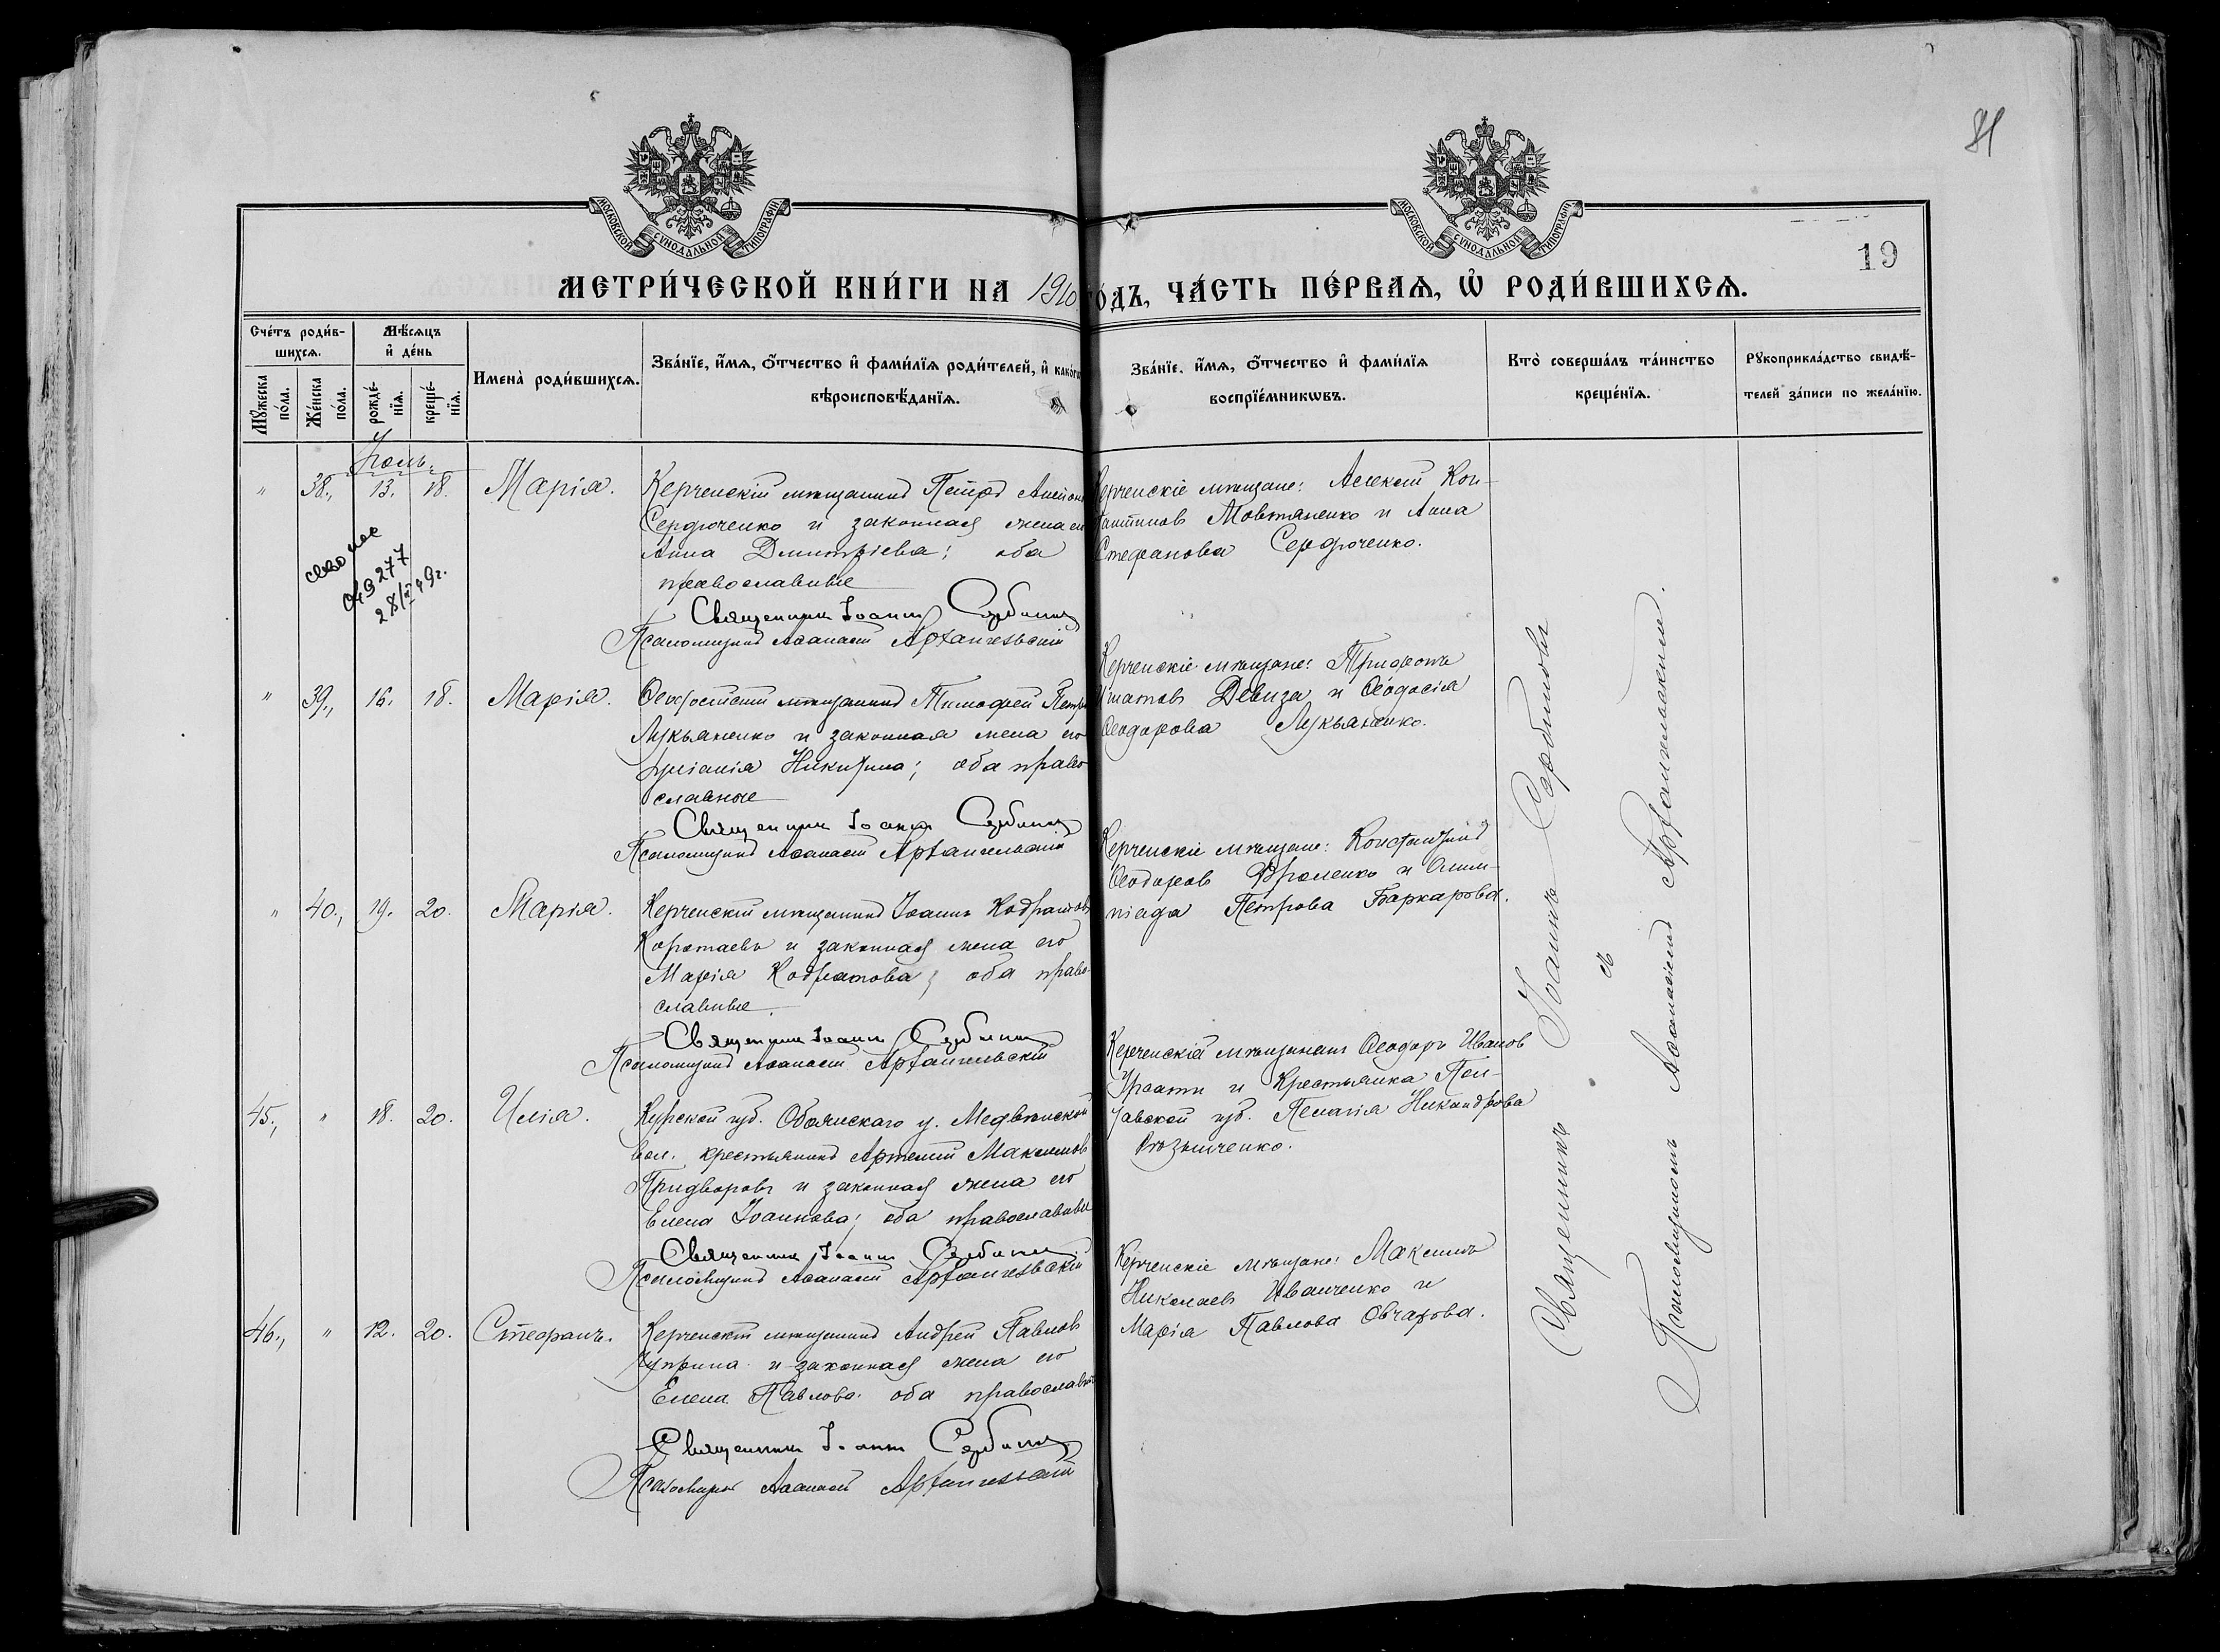 81
19
МОСКОВСКОЙ СѴНОДАЛЬНОЙ ТИПОГРАФІИ
МОСКОВСКОЙ СѴНОДАЛЬНОЙ ТИПОГРАФІИ
МЕТРИ́ЧЕСКОЙ КНИ́ГИ НА 1910 ГО́ДЪ, ЧА́СТЬ ПЕ́РВАѦ, Ѡ РОДИ́ВШИХСѦ.
Сче́тъ роди́в-
шихсѧ.
Мѣ́сѧцъ
и҆ де́нь
Мꙋ́жеска
по́ла.
Же́нска
по́ла.
рожде́-
нїѧ.
креще́-
нїѧ.
Имена̀ роди́вшихсѧ.
Зва́нїе, и҆́мѧ, ѻ҆́тчество и҆ фами́лїѧ роди́телей, и҆ како́гѡ
вѣроисповѣ́данїѧ.
Зва́нїе, и҆́мѧ, ѻ҆́тчество и҆ фами́лїѧ
воспрїе́мникѡвъ.
Кто̀ соверша́лъ та́инство
креще́нїѧ.
Рꙋкоприкла́дство свидѣ́-
телей за́писи по жела́нїю.
Іюль.
" 38., 13. 18. Марія. Керченскій мѣщанинъ Петръ
Сердюченко и законная жена его
Анна Димитріева; оба
православные
Священникъ Іоаннъ Сербиновъ
Псаломщикъ Аѳанасій Архангельскій
049277
28/ 49г.
Керченскіе мѣщане: Алексѣй Кон-
стантиновъ Мовтяненко и Анна
Стефанова Сердюченко.
" 39., 16. 18. Марія. Ѳеодосійскій мѣщанинъ Тимоѳей Петровъ
Лукьяненко и законная жена его
Іуліанія Никитина; оба право-
славные
Священникъ Іоаннъ Сербиновъ
Псаломщикъ Аѳанасій Архангельскій
Керченскіе мѣщане: Трифонъ
Игнатовъ Девиза и Ѳеодосія
Ѳеодорова Лукьяненко.
" 40., 19. 20. Марія. Керченскій мѣщанинъ Іоаннъ Кодратовъ
Коротаевъ и законная жена его
Марія Кодратова; оба право-
славные.
Священникъ Іоаннъ Сербиновъ
Псаломщикъ Аѳанасій Архангельскій
Керченскіе мѣщане: Константинъ
Ѳеодоровъ Фроленко и Олим-
піада Петрова Баркарова.
45., " 18. 20. Илія. Курской губ. Обоянскаго у. Медвѣнской
вол. крестьянинъ Артемій Максимовъ
Придворовъ и законная жена его
Елена Іоаннова; оба православные
Священникъ Іоаннъ Сербиновъ
Псаломщикъ Аѳанасій Архангельскій
Керченскій мѣщанинъ Ѳеодоръ Ивановъ
и Крестьянка Пол-
тавской губ. Пелагія Никандрова
46., " 12. 20. Стефанъ. Керченскій мѣщанинъ Андрей Павловъ
Чуприна и законная жена его
Елена Павлова оба православные
Священникъ Іоаннъ Сербиновъ
Псаломщикъ Аѳанасій Архангельскій
Керченскіе мѣщане: Максимъ
Николаевъ Иванченко и
Марія Павлова Овчарова.
Священникъ Іоаннъ Сербиновъ
съ
Псаломщикомъ Аѳанасіемъ Архангельскимъ.